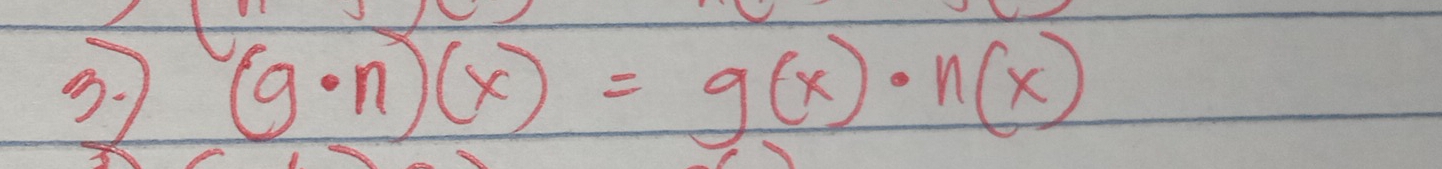 3.) (g·n)(x) = g(x)·n(x)